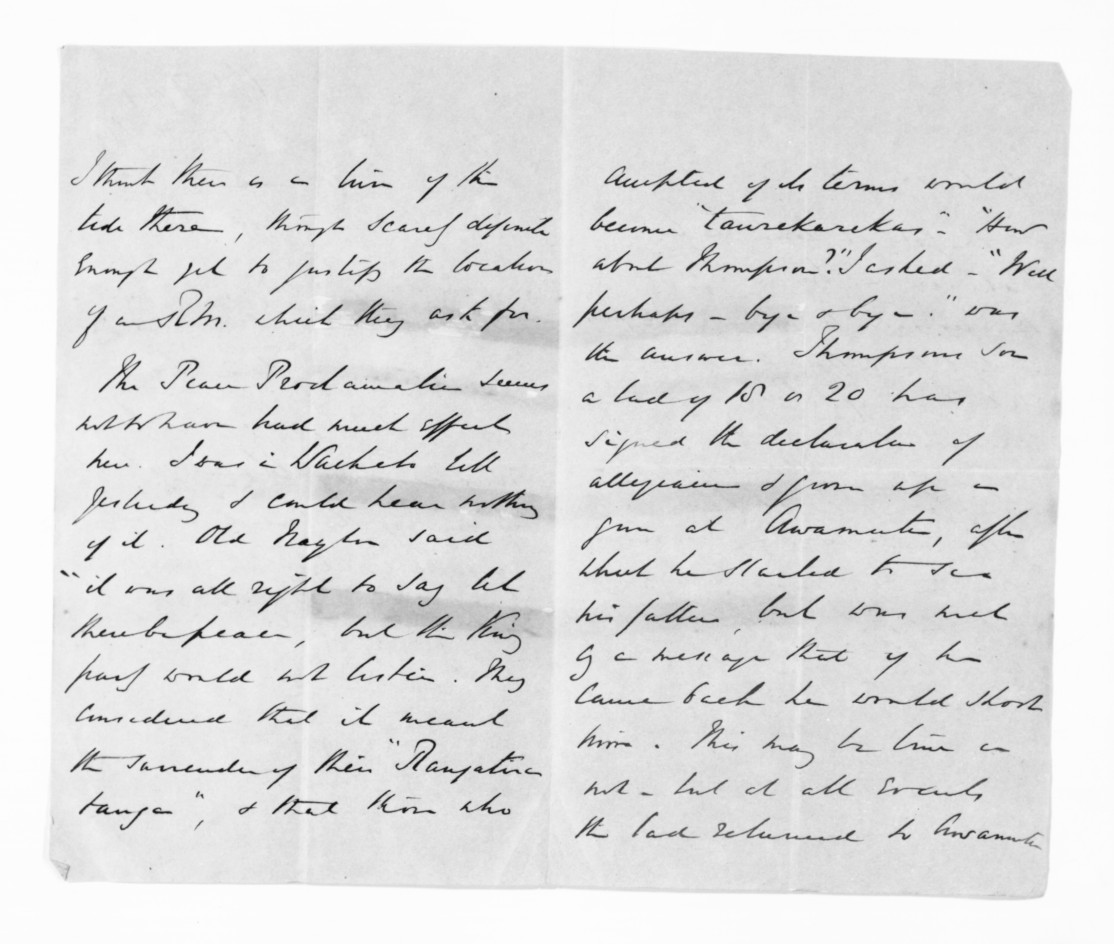 I think there is a turn of the
tide there, though scarcely definite
enough yet to justify the location
of an R.M. which they ask for.
The Peace Proclamation seems
not to have had much effect
here. I was in Waikato till
yesterday & could hear nothing
of it. Old Naylor said
"it was all right to say let
there be peace, but the King
party would not listen. They
considered that it meant
the surrender of their "Rangatira
tanga", & that those who
accepted of its terms would
become "taurekarekas"- "How
about Thompson?" I asked - "Well
perhaps - bye & bye -." was
the answer. Thompson's son
a lad of 18 or 20 has
signed the declaration of
allegiance & given up a
gun at Awamutu, after
which he started to see
his father, but was met
by a message that if he
came back he would shoot
him. This may be true or
not - but at all events
the lad returned to Awamutu